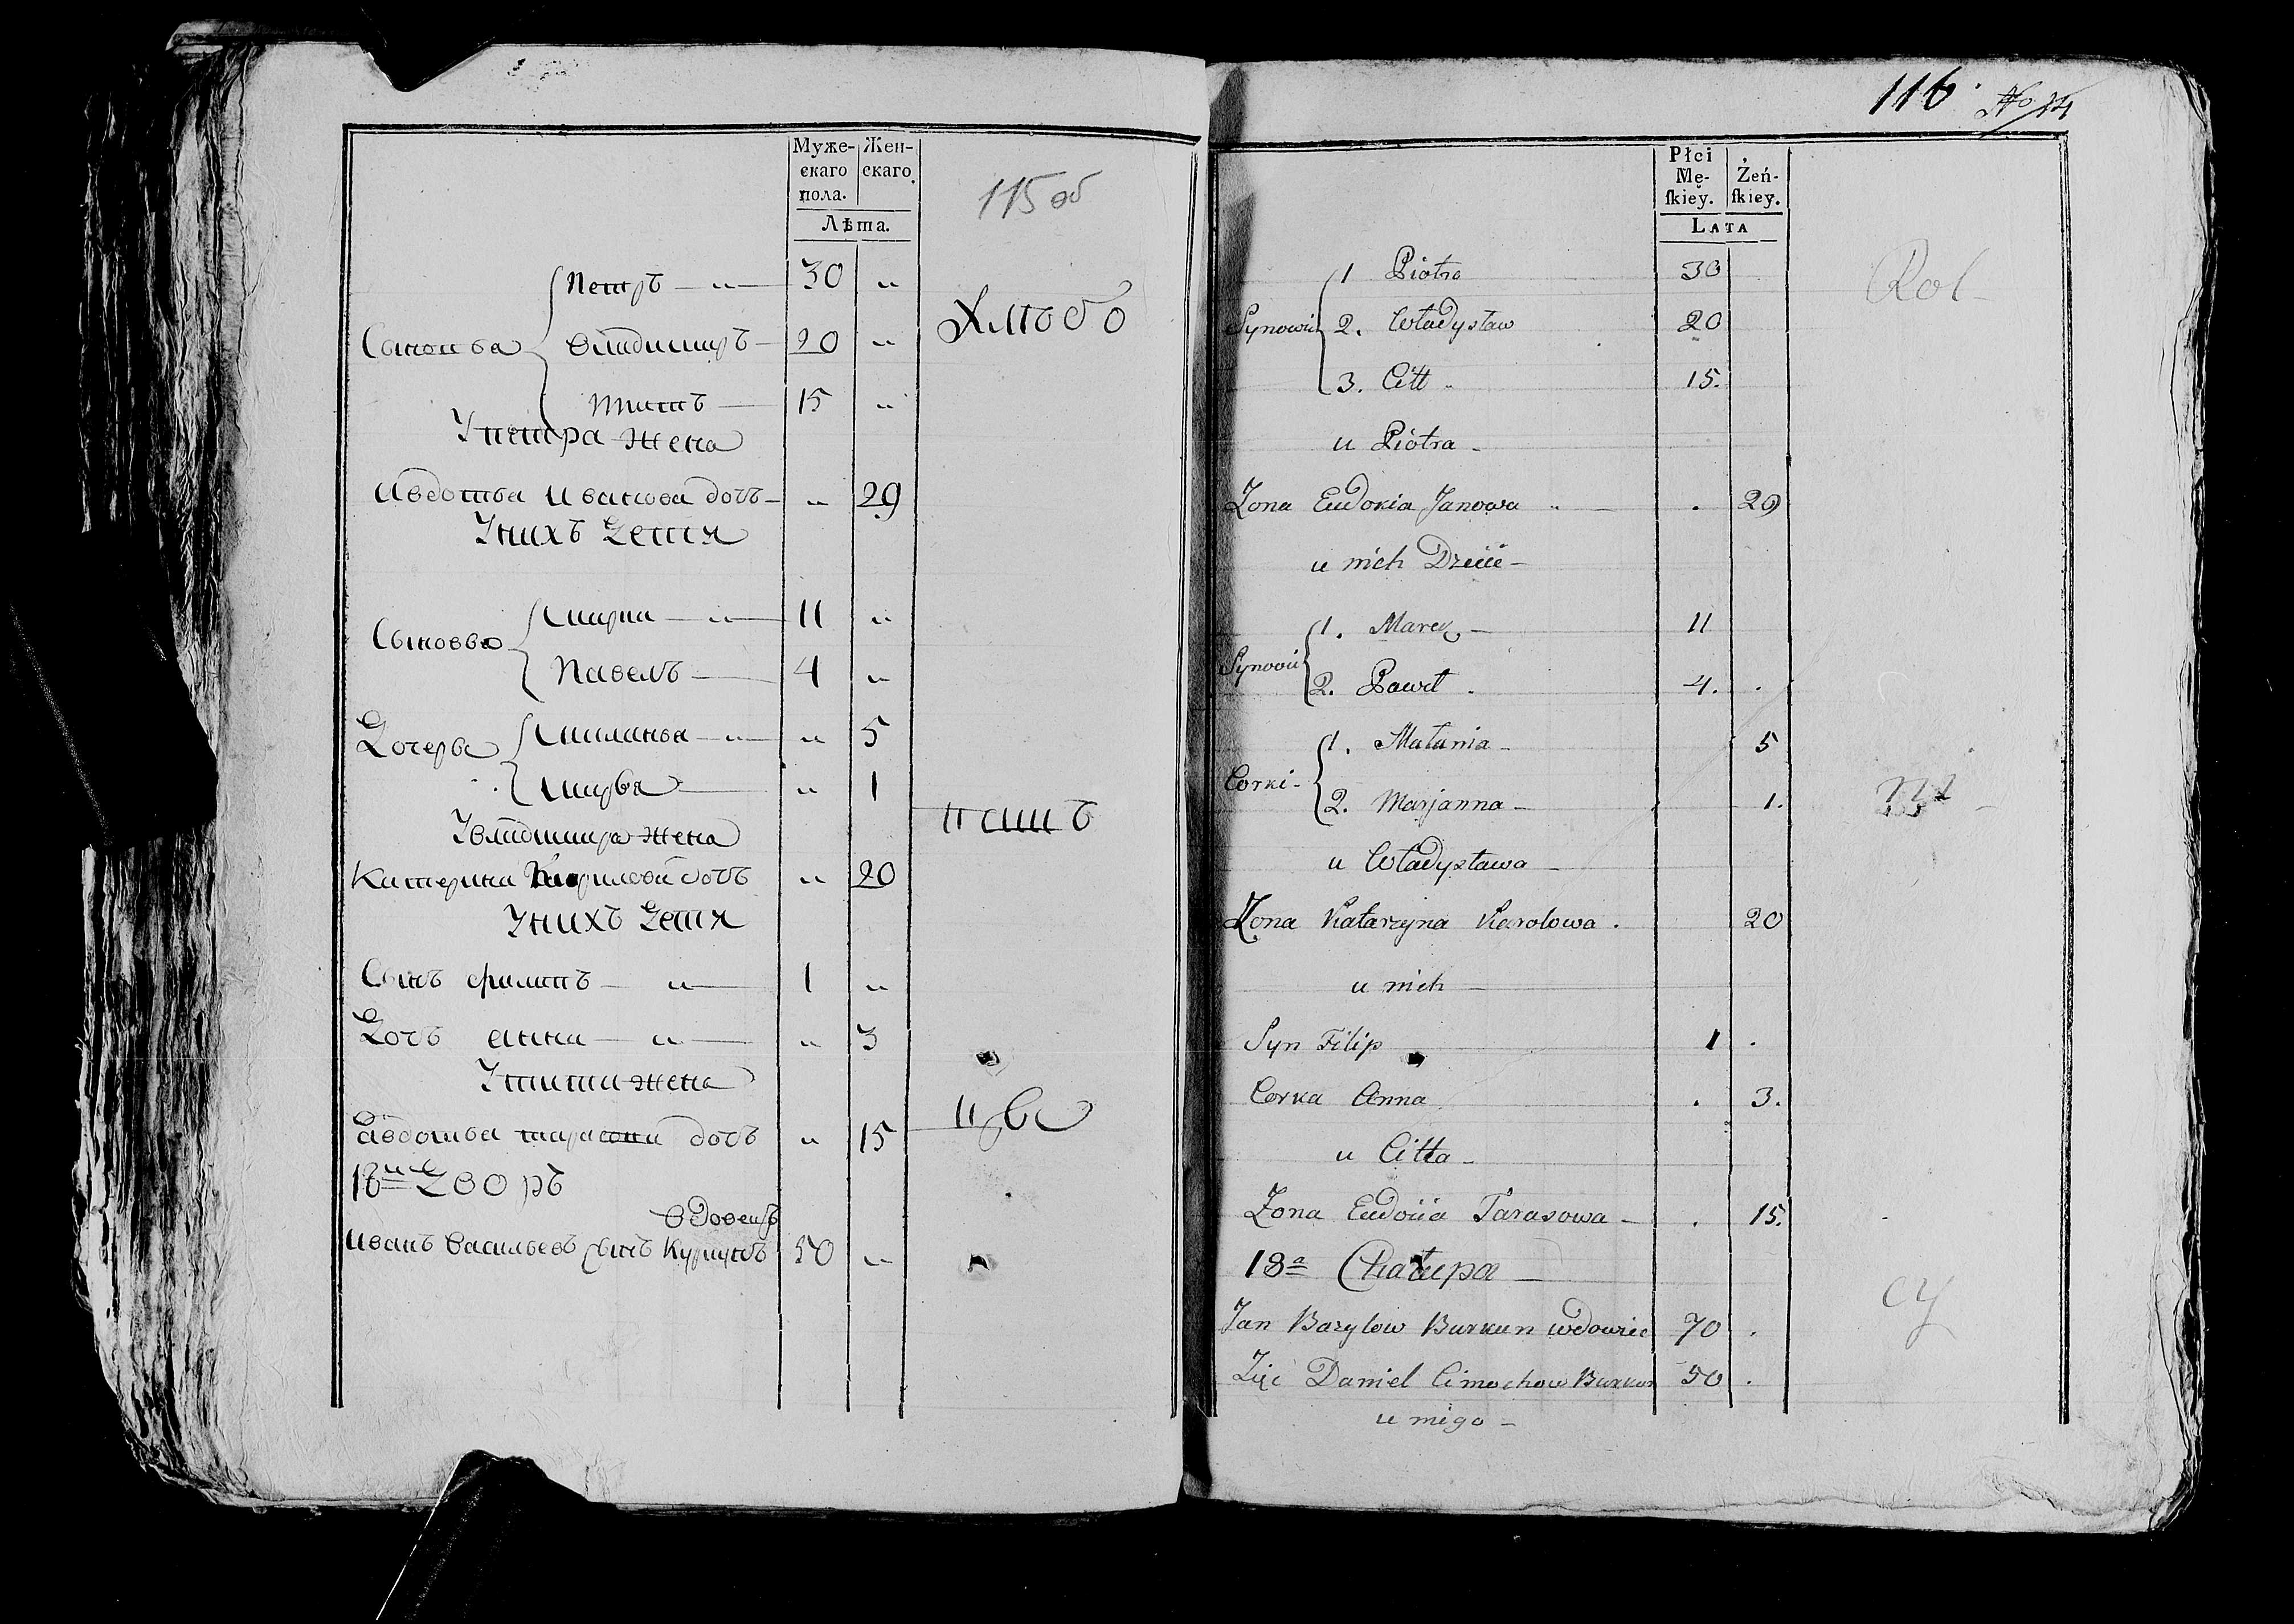 Муже-
скаго
пола.
Жен-
скаго
Лѣта.
115 об
Петръ 30 "
Сыновья Владимиръ 20 "
Титъ 15 "
У Петра жена
Авдотья Иванова дочь " 29
У нихъ дети
Сыновья Марка 11 "
Павелъ 4 "
Дочерьи Миланья " 5
Марья " 1
У Владимира жена
Катерина Кирилова дочь " 20
У нихъ дети
Сынъ Филипъ 1 "
Дочь Анна " 3
У Тита жена
Авдотья Тарасова дочь " 15
18й Дворъ
вдовецъ
Иванъ Васильевъ сынъ Куркунъ "
116 No
Płci
Mę-
ſkiey.
Żeń-
ſkiey.
LATA
1 Piotro 30
Synowie 2. Władysław 20
3. Citt 15.
u Piotra
Zona Eudokia Janowa . 29
u nich Dzieci
1. Marek 11
Synowie 2. Paweł 4. .
1. Małania 5
Corki 2. Marjanna 1.
u Władysława
Zona Katarzyna Karolowa . 20
u nich
Syn Filip 1 .
Corka Anna . 3.
u Citta
Zona Eudocia Tarasowa . 15.
18a Chałupa
Jan Bazylow Burkun wdowiec 70 .
Zięć Daniel Cimochow Burkun 50 .
u niego